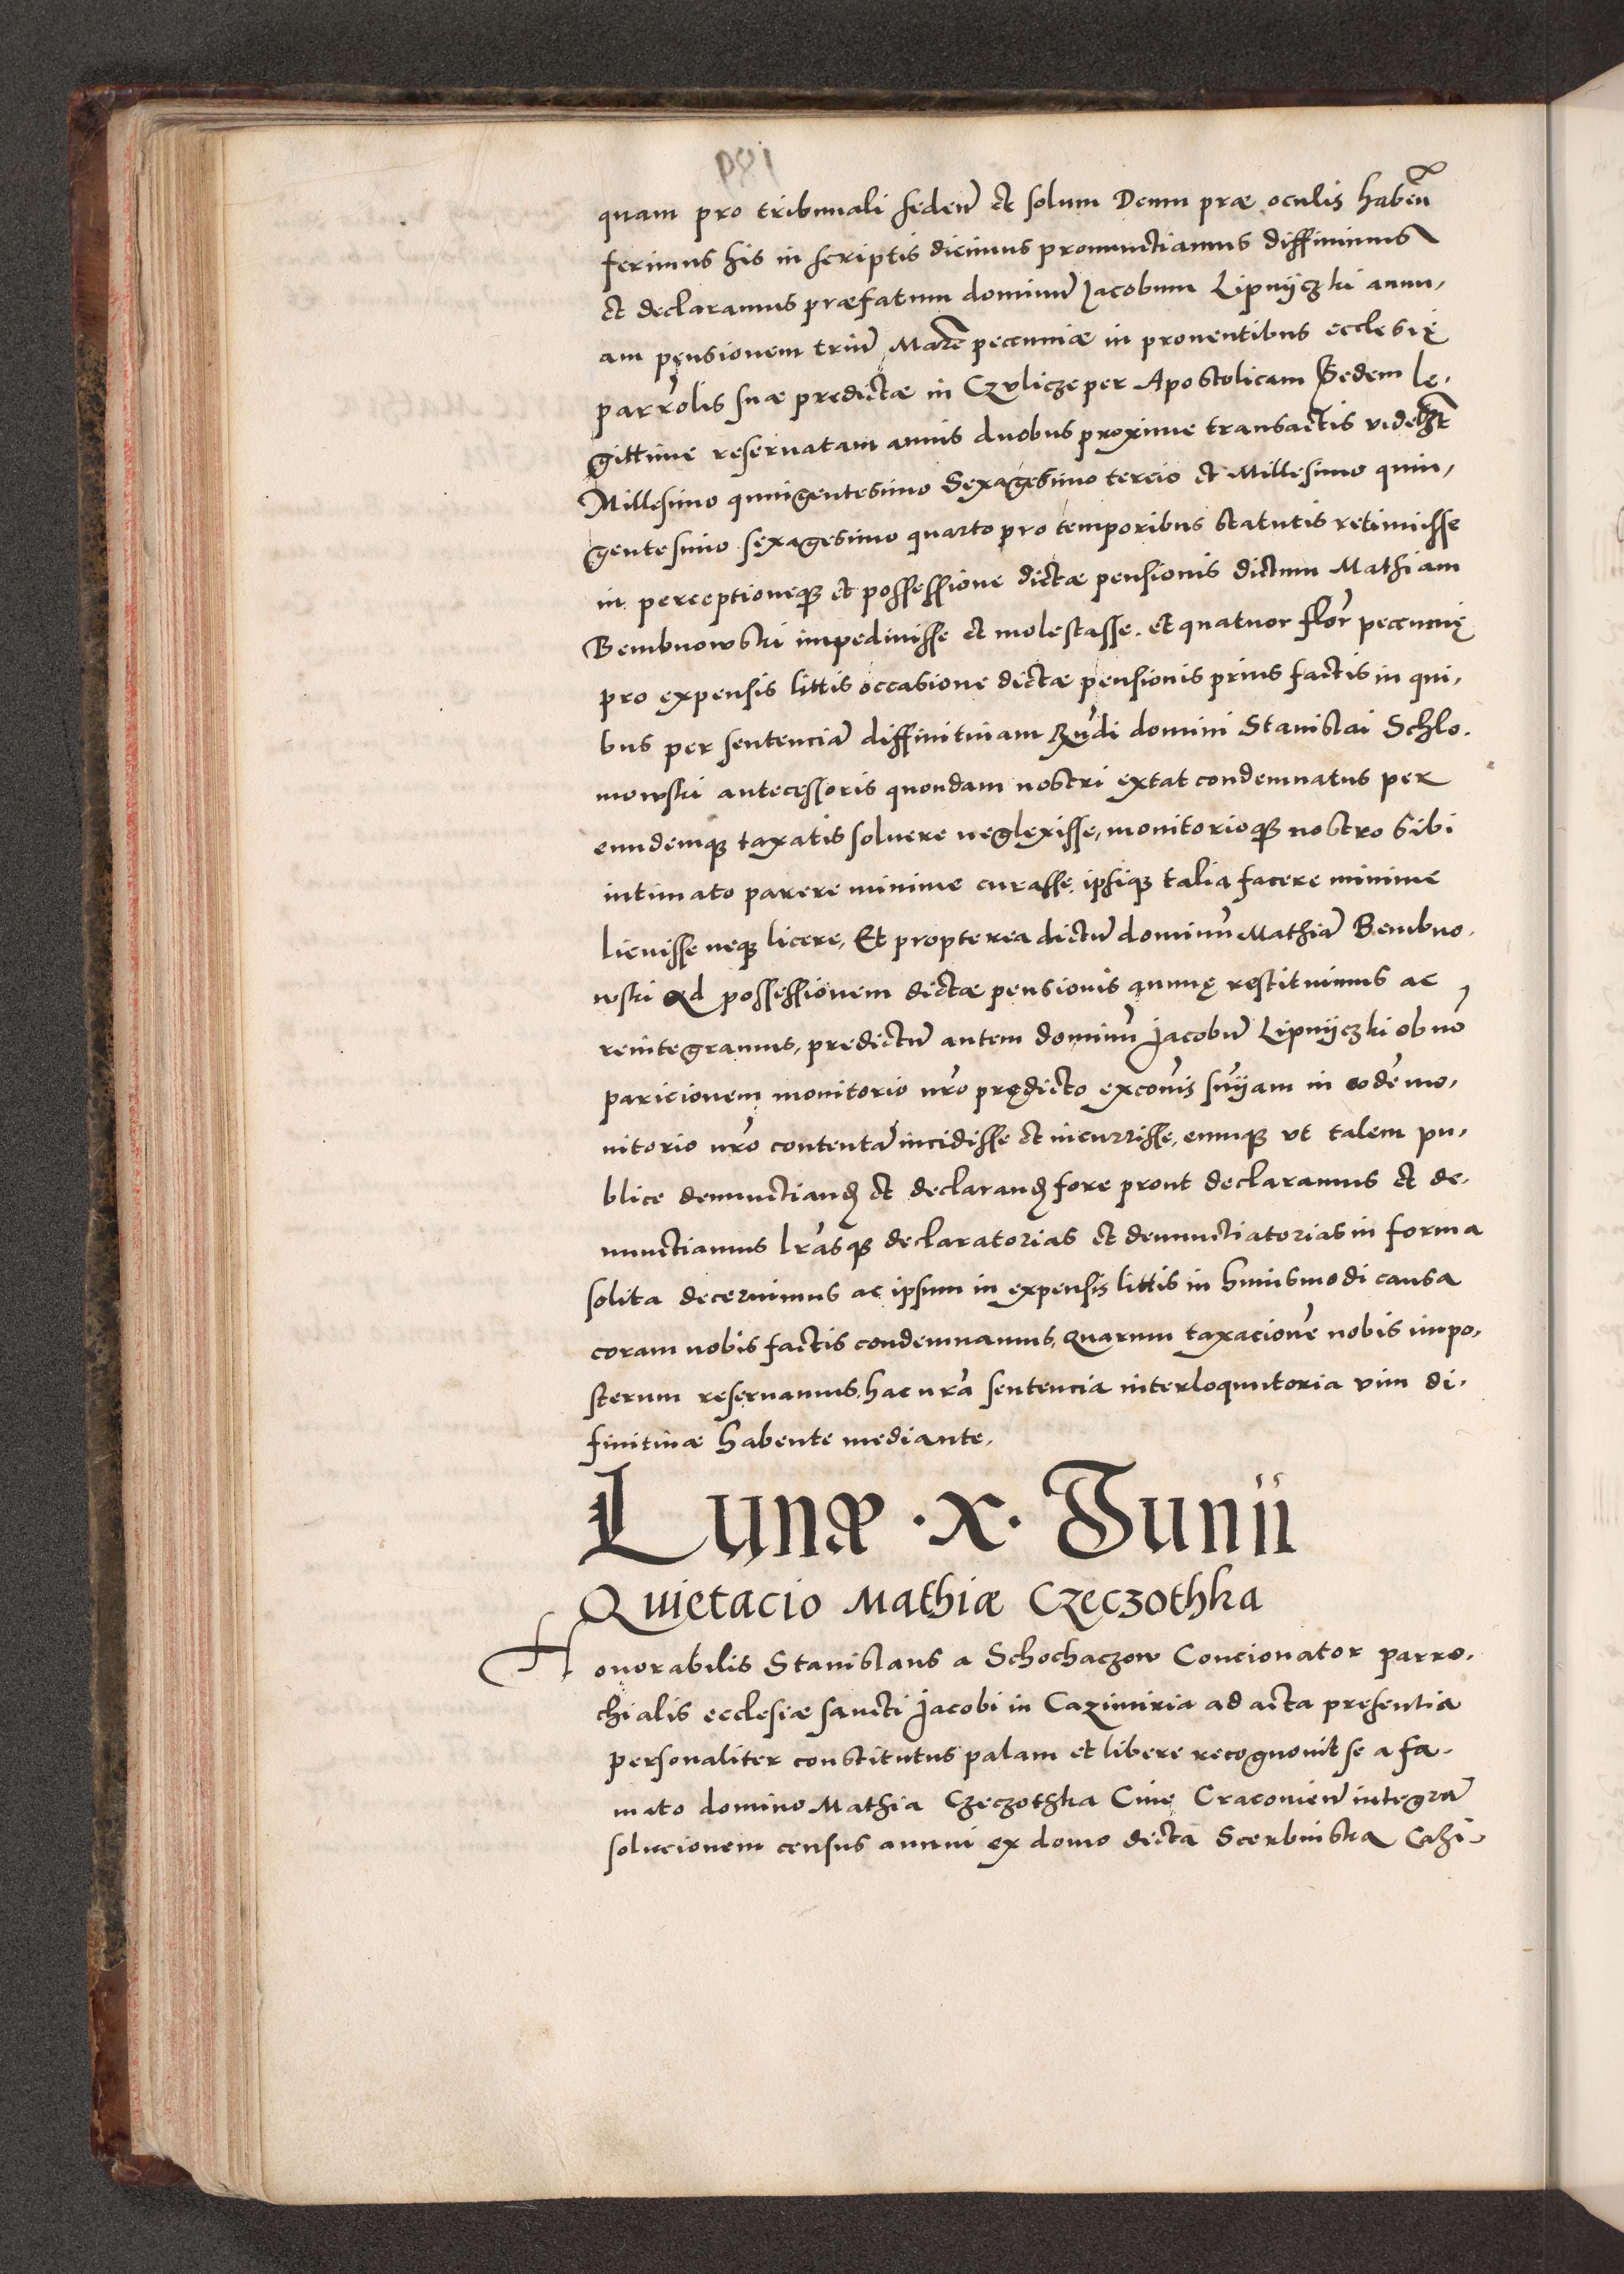 quam pro tribunali seden̄ et solum Deum præ oculis haben̄
ferimus his in scriptis dicimus pronunctiamus diffinimus
et declaramus præfatum dominū Jacobum Lipnÿczki annu,
am pensionem triū Marc̄ pecuniæ in prouentibus ecclesię
parrolis suæ predictæ in Czulicze per Apostolicam Sedem le,
gittime reseruatam annis duobus proxime transactis videlzt
Millesimo quingentesimo Sexagesimo tercio et Millesimo quin,
gentesimo sexagesimo quarto pro temporibus statutis retinuisse
in perceptioneqȝ et possessione dictæ pensionis dictum Mathiam
Bembnowski impediuisse et molestasse. et quatuor flor̄ pecunię
pro expensis littis occasione dictæ pensionis prius factis in qui,
bus per sentenciā diffinitiuam Rn̄di domini Stanislai Schlo,
mowski antecessoris quondam nostri extat condemnatus per
eundemqȝ taxatis soluere neglexisse, monitorioqȝ nostro sibi
intimato parere minime curasse, ipsiqȝ talia facere minime
licuisse neqȝ licere, Et propterea dictū dominū Mathiā Bembno,
wski ad possessionem dictæ pensionis annuę restituimus ac
reintegramus, predictū autem dominū Jacobū Lipnÿczki ob nō
paricionem monitorio nr̄o prędicto excōis sn̄iam in eodē mo,
nitorio nr̄o contentā incidisse et incurrisse, eumqȝ vt talem pu,
blice denunctianđ et declaranđ fore prout declaramus et de,
nunctiamus lr̄asqȝ declaratorias et denunctiatorias in forma
solita decernimus ac ipsum in expensis littis in huiusmodi causa
coram nobis factis condemnamus, Quarum taxacionē nobis impo,
sterum reseruamus, hac nr̄a sentencia interloquutoria vim di,
finitiuæ habente mediante.
Lunæ .x. Junii
Quietacio Mathiæ Czeczothka
Honorabilis Stanislaus a Schochaczow Concionator parro,
chialis ecclesiæ sancti Jacobi in Cazimiria ad acta presentia
personaliter constitutus palam et libere recognouit se a fa,
mato domino Mathia Czeczothka Ciue Cracouien̄ integrā
solucionem census annui ex domo dicta Scerbinska Cazi,